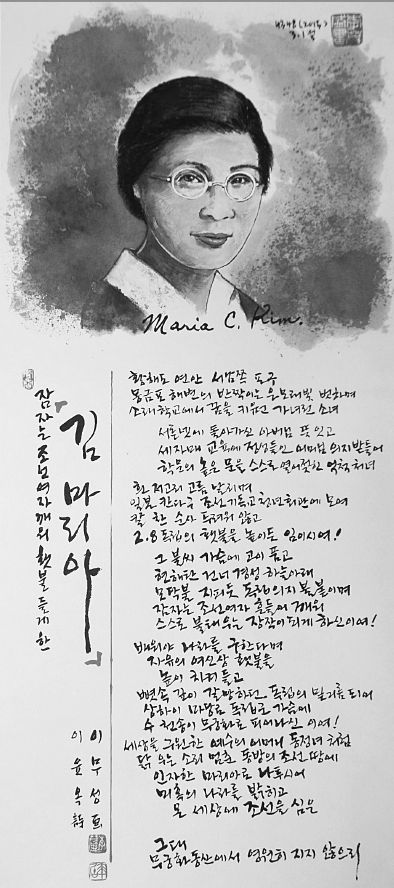 4348(2015)
3.1절
Maria C. Kim.
잠자는 조선여자 깨워 횃불 들게 한
『김마리아』
이무성
이윤옥 詩
황해도 연안 서남쪽 포구
몽금포 해변의 반짝이는 은모래빛 벗하며
소래학교에서 꿈을 키우던 가녀린 소녀
서른넷에 돌아가신 아버님 뜻 잇고
세자매 교육에 정성들인 어머님 의지받들어
학문의 높은 문을 스스로 열어젖힌 억척처녀
흰 저고리 고름 날리며
일본 칸다구 조선기독교청년회관에 모여
칼 찬 순사 두려워 않고
2.8 독립의 횃불을 높이든 임이시여!
그 불씨 가슴에 고이 품고
현해탄 건너 경성 하늘아래
모닥불 지피듯 독립의지 불붙이며
잠자는 조선여자 흔들어 깨워
스스로 불태우는 장작이되게 하신이여!
배워야 나라를 구한다며
자유의 여신상 횃불을
높이 치켜들고
뼛속 깊이 갈망하던 독립의 밑거름되어
상하이 마당로 독립군 가슴에
수 천송이 무궁화로 피어나신 이여!
세상을 구원한 예수의 어머니 동정녀처럼
닭 우는 소리 멈춘 동방의 조선땅에
인자한 마리아로 나투시어
미혹의 나라를 밝히고
온 세상에 조선을 심은
그대
무궁화동산에서 영원히 지지 않으리